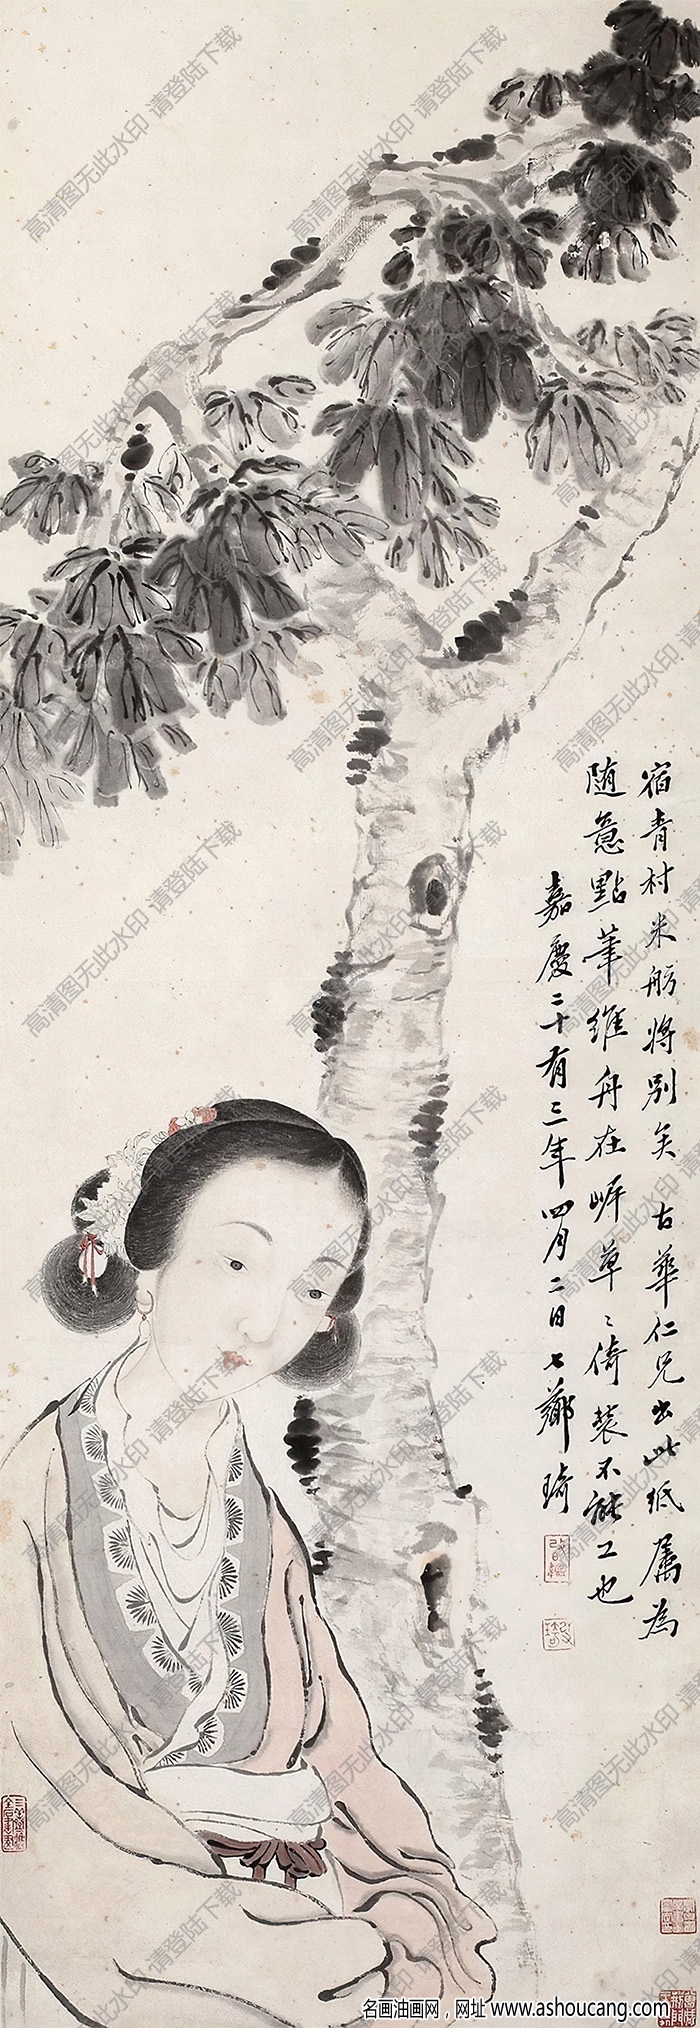 宿青村米舫将别矣古華仁兄出此纸属為
随意點筆維舟在岸草〻倚装不能工也
嘉慶二十有三年四月二日七薌琦
高清图无此水印 请登陆下载
名画油画网，网址 www.ashoucang.com